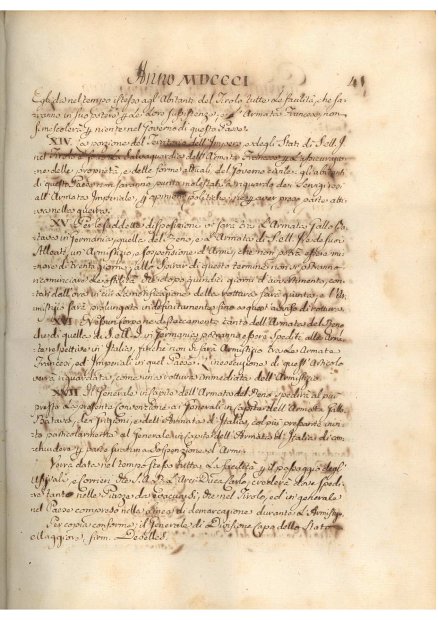 Anno MDCCCI 41
Egli dà nel tempo stesso agl'Abitanti del Tirolo tutte le facilità, che sa-
ranno in suo potere p. la loro sussistenza, e l'Armata Francese non
si mescolerà p. niente nel Governo di questo Paese.
XIV. La porzione del Territorio dell'Impero, e degli Stati di S. M. I.
nel Tirolo è sotto la salvaguardia dell'Armata Francese p. la
ne delle proprietà, e delle forme attuali del Governo gli abitanti
di questo Paese non saranno punto molestati riguardo dei Servigi resi
all'Armata Imperiale, p. opinioni politiche, nè p. aver preso parte atti-
va nella guerra.
XV. Per le suddette disposizioni vi sarà tra l'Armata Gallo Ba-
tava in Germania, quella del Reno, e l'Armata di S. M. I. e de' suoi
Alleati un Armistizio, e sospensione d'Armi, che non potrà essere mi-
nore di trenta giorni; allo spirar di questo termine non si potranno
ricominciare le ostilità che dopo quindici giorni d'avvertimento, con-
tati dall'ora in cui la notificazione della rottura sarà giunta, e l'Ar-
mistizio sarà prolungato indefinitamente sino a quest'avviso di rottura.
XVI. Nessun corpo, e distaccamento tanto dell'Armata del Reno
che di quella di S. M. I. in Germania potranno essere spediti alle Arma-
te rispettive in Italia, finchè non vi sarà Armistizio tra le Armate
Francesi, ed Imperiali in quel Paese. inesecuzione di quest'Articolo
verrà riguardata come una rottura immediata dell'Armistizio.
XVII. Il Generale in Capite dell'Armata del Reno spedirà al più
presto la presente Convenzione ai Generali in Capite dell'Armata Gallo
Batava, dei Grigioni, e dell'Armata d'Italia, col più pressante invito
particolarmente al Generale in Capite dell'Armata d'Italia di con-
chiudere p. parte sua una Sospensione d'Armi.
Verrà data nel tempo stesso tutta la facilità p. il passaggio degl'
Uffiziali, e Corrieri che S. A. R. l'Arci-Duca Carlo, crederà dover spedi-
re tanto nelle Piazze da evacuarsi, che nel Tirolo, ed in generale
nel Paese compreso nella Linea di demarcazione durante l'Armistizio.
Per copia conforme il Generale di Divisione Capo dello Stato
Maggiore, firm. Dessolles.